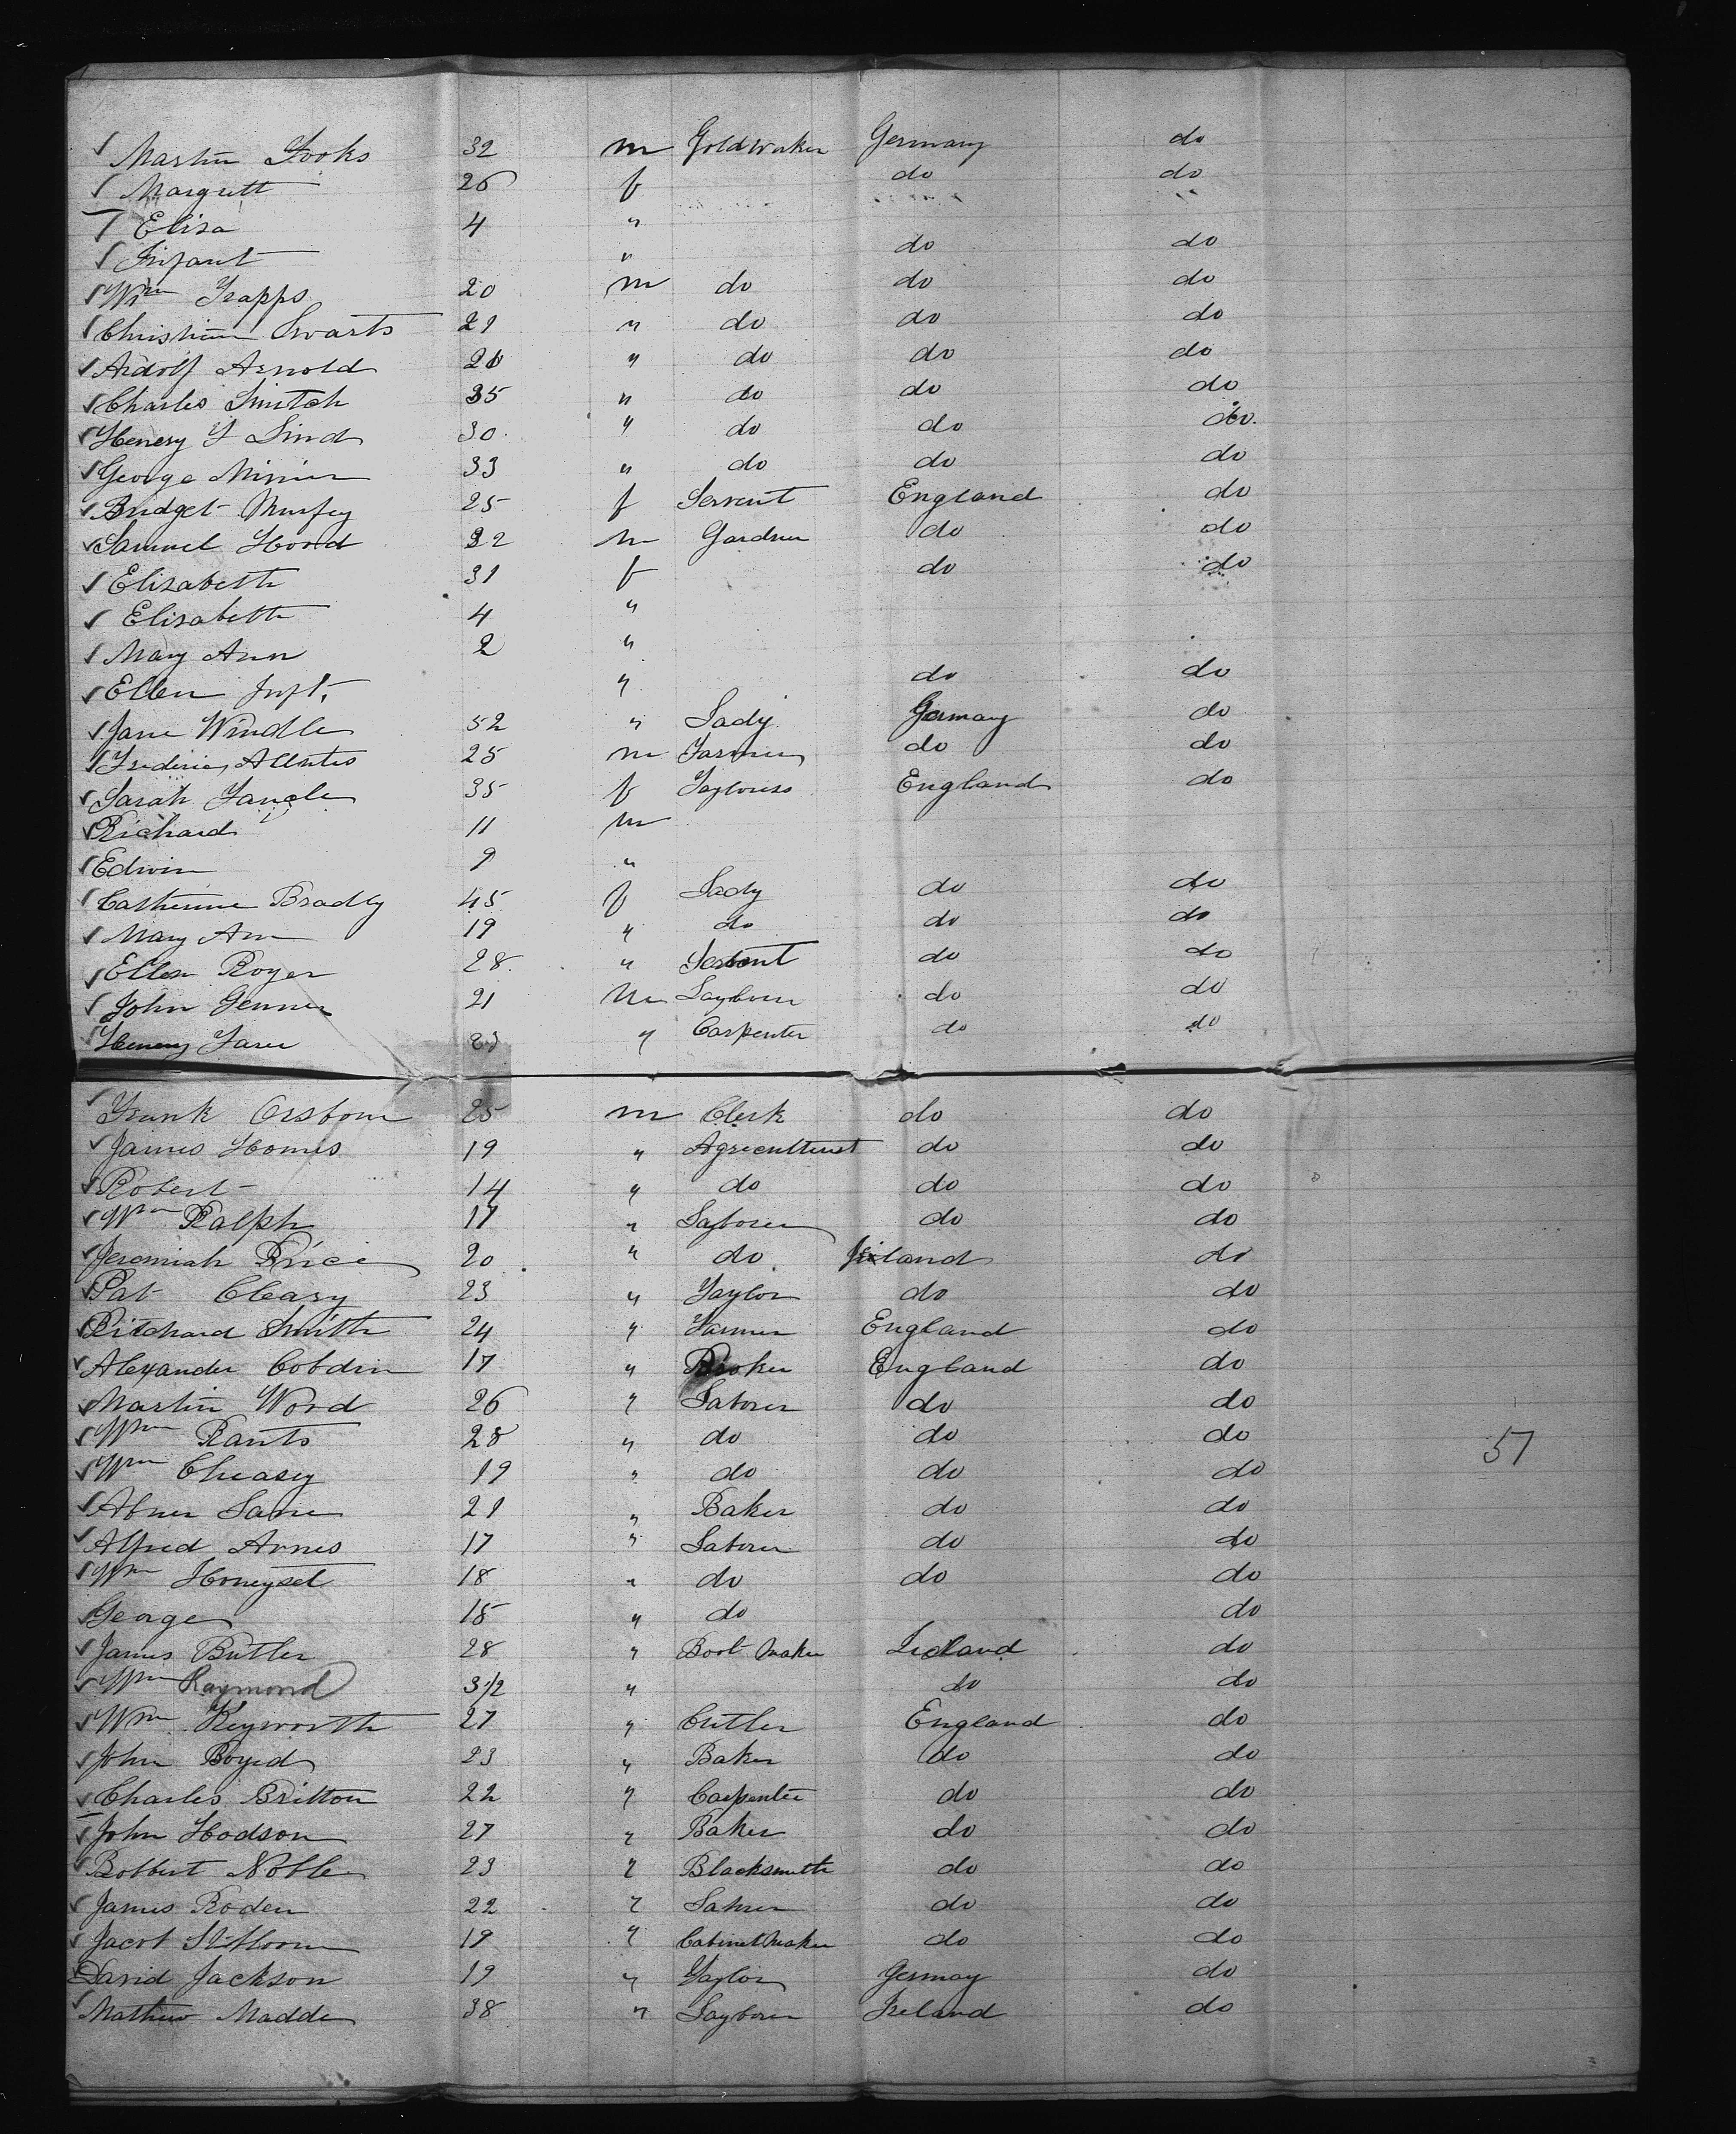 ✓ Martin Fooks 32 m Goldworker Germany do
✓ Margrett 26 f do do
Elisa 4 "
✓ Infant " do do
✓ Wm Trapps 20 m do do do
✓ Christian Swarts 21 " do do do
✓ Ardolf Arnold 20 " do do do
✓ Charles Smitch 35 " do do do
✓ Henery Y Lind 30 " do do do.
✓ George 33 " do do do
✓ Bridget Murfey 25 f Servent England do
✓ Samuel Hood 32 m Gardner do do
✓ Elizabeth 31 f do do
✓ Elizabeth 4 "
✓ Mary Ann 2 "
✓ Ellen Inft. " do do
✓ Jane Windle 52 " Lady Germany do
✓ Frederic 25 m Farmer do do
✓ Sarah 35 f Tayloress England do
✓ Richard 11 m
✓ Edwin 9 "
✓ Catherine Bradly 45 f Lady do do
✓ Mary Ann 19 " do do do
✓ Ellen Royer 28 " Servent do do
✓ John Genner 21 m do do
✓ Henery " Carpenter do do
✓ Frank Orsborn 25 m Clerk do do
✓ James Homes 19 " Agricultured do do
✓ Robert 14 " do do do
✓ Wm Ralph 17 " Layborer do do
✓ Jeremiah Price 20 " do Ireland do
✓ Pat Cleary 23 " Taylor do do
✓ Ritchard Smith 24 " Farmer England do
✓ Alexander Cobdin 17 " Broker England do
✓ Martin Word 26 " Laborer do do
✓ Wm Rants 28 " do do do
57
✓ Wm Cheasey 19 " do do do
✓ Abner Lane 21 " Baker do do
✓ Alfred Arnes 17 " Laborer do do
✓ Wm Honeyset 18 " do do do
✓ George 15 " do do
✓ James Butler 28 " Boot Maker Ireland do
✓ Wm Raymond 31/2 " do do
✓ Wm Keyworth 27 " Cutler England do
✓ John Boyed 23 " Baker do do
✓ Charles Britton 22 " Carpenter do do
✓ John Hodson 27 " Baker do do
✓ Bobbert Noble 23 " Blacksmith do do
✓ James Roden 22 " Laborer do do
✓ Jacob 19 " Cabinet Maker do do
✓ David Jackson 19 " Taylor Germay do
✓ Mathew Madden 38 " Layborer Ireland do